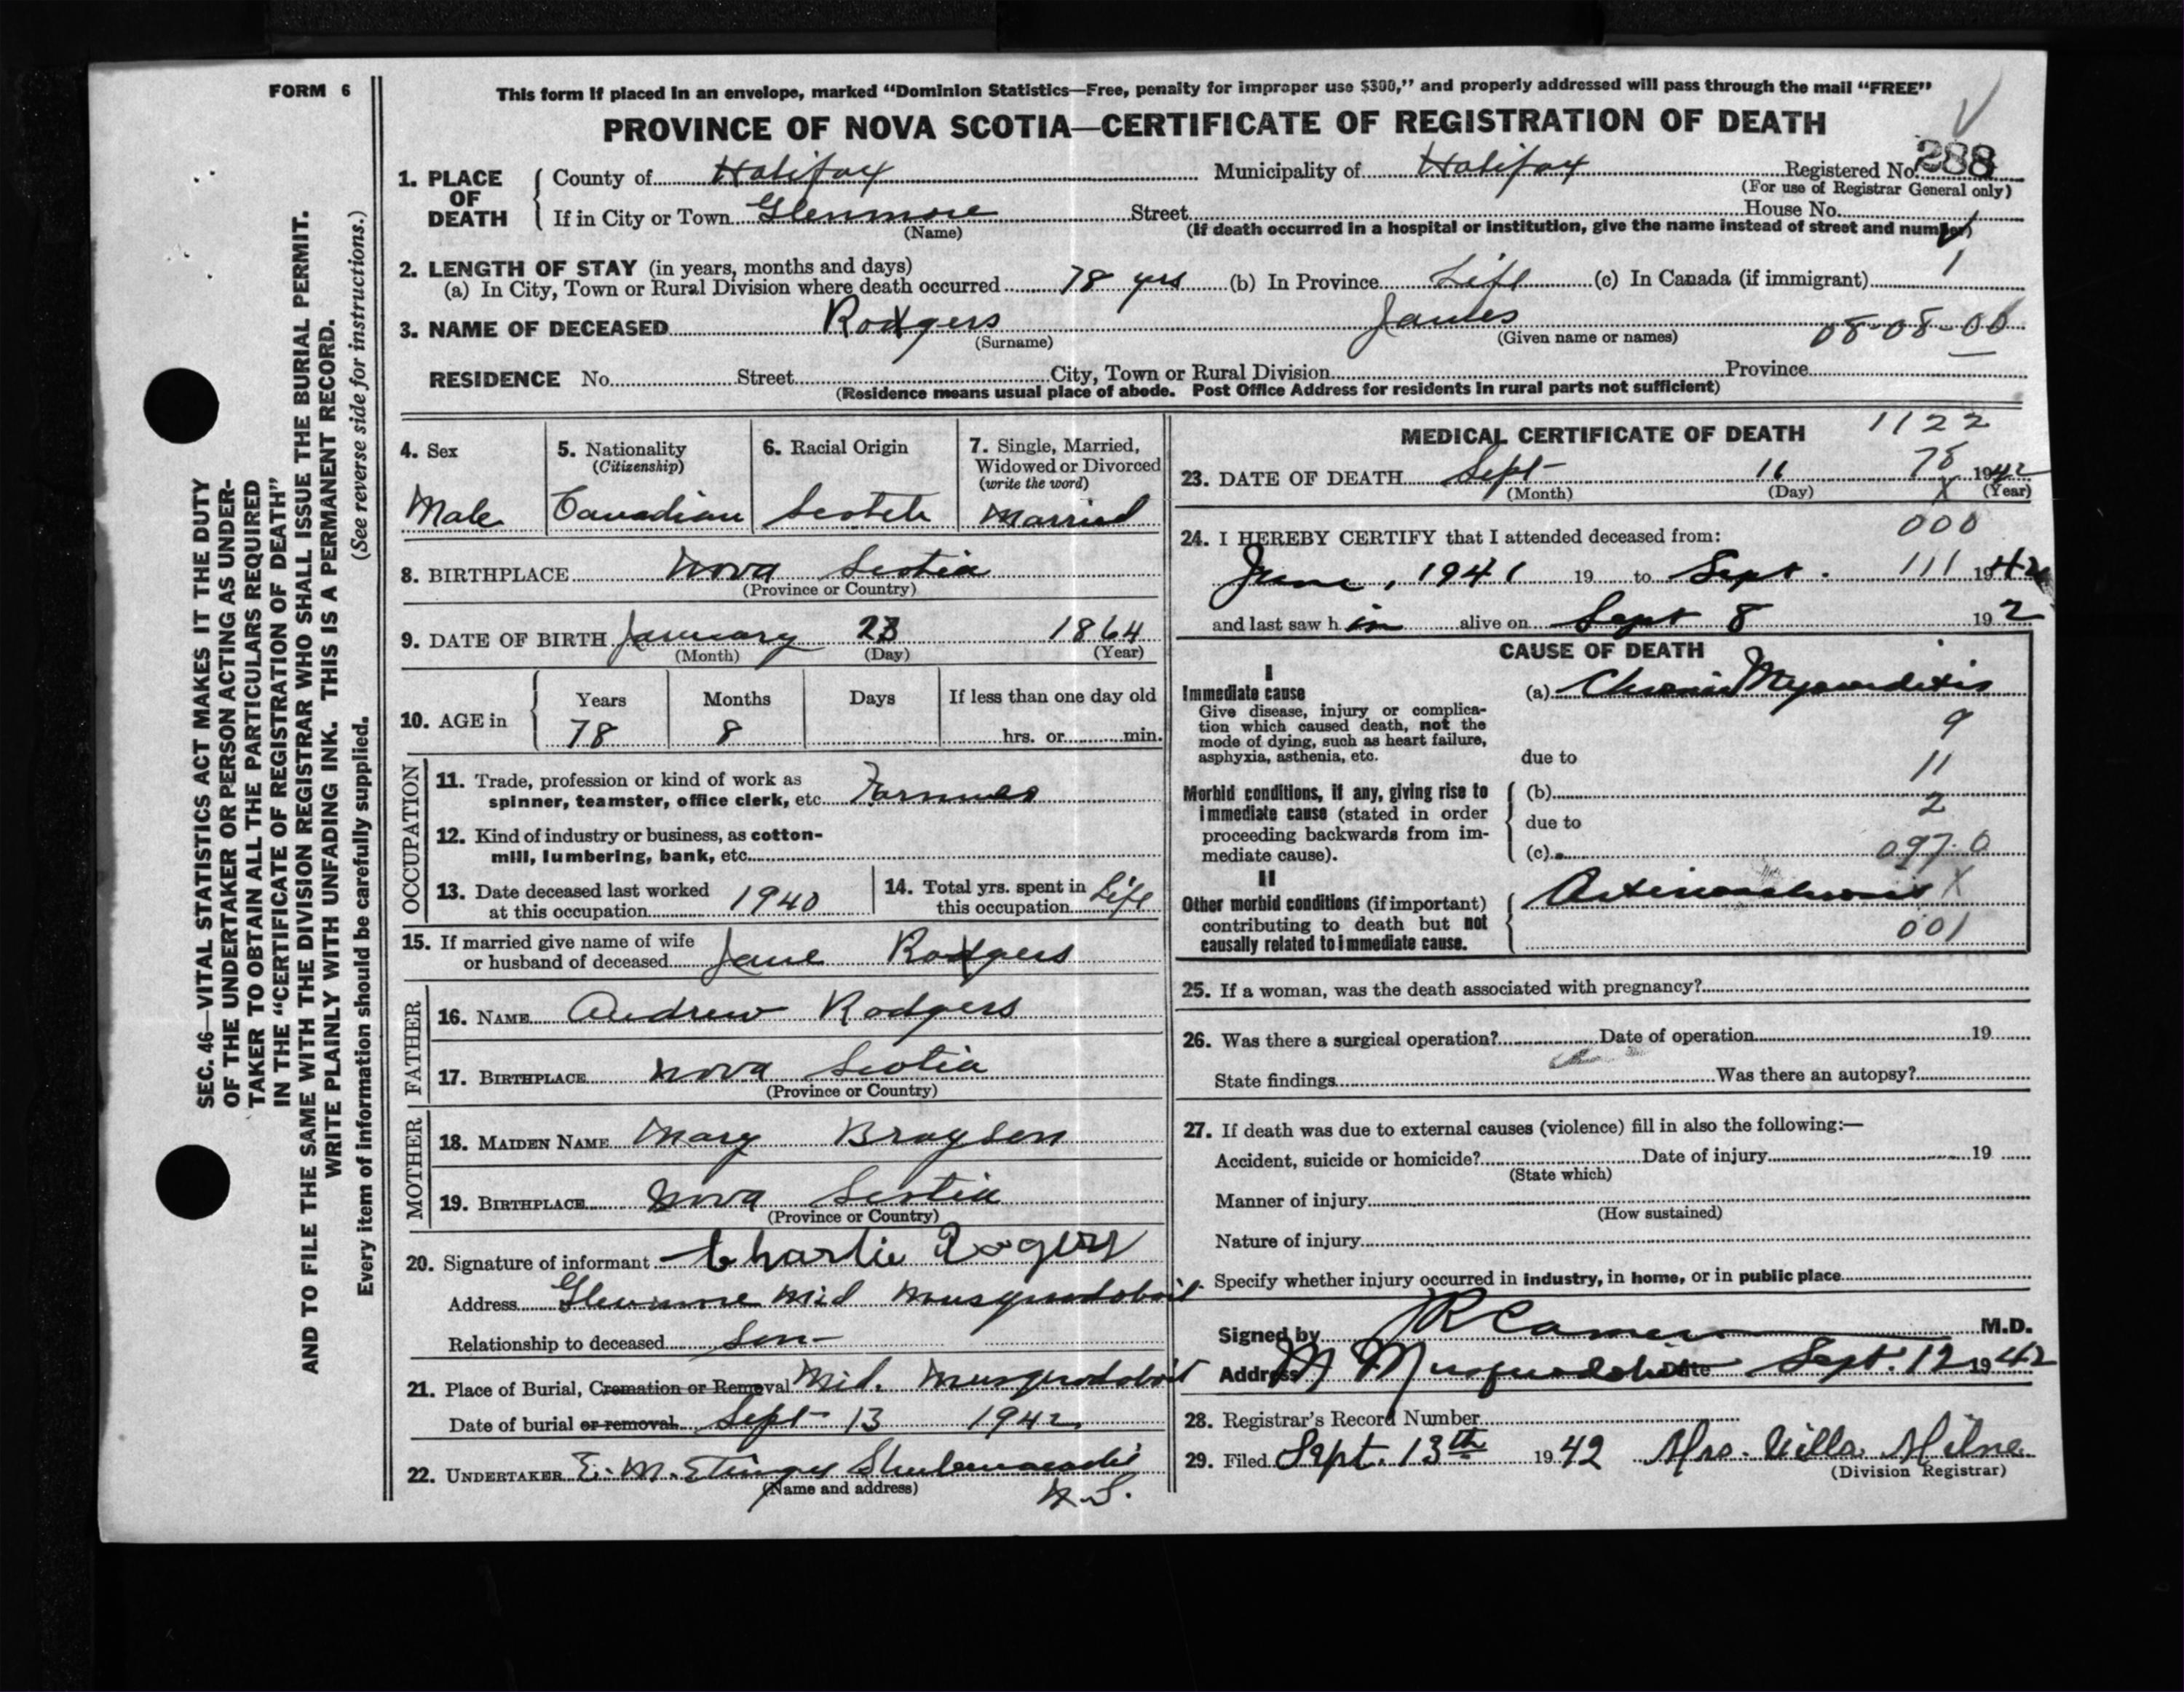 FORM 6
This form if placed in an envelope, marked “Dominion Statistics—Free, penalty for improper use $300,” and properly addressed will pass through the mail “FREE”
PROVINCE OF NOVA SCOTIA—CERTIFICATE OF REGISTRATION OF DEATH
1. PLACE OF DEATH
County of Halifax Municipality of Halifax Registered No. 288
(For use of Registrar General only)
If in City or Town Glenmore Street House No.
(Name) (If death occurred in a hospital or institution, give the name instead of street and number)
2. LENGTH OF STAY (in years, months and days)
(a) In City, Town or Rural Division where death occurred 78 yrs (b) In Province Life (c) In Canada (if immigrant)
3. NAME OF DECEASED Rodgers James 08-08-00
(Surname) (Given name or names)
RESIDENCE No. Street City, Town or Rural Division Province
(Residence means usual place of abode. Post Office Address for residents in rural parts not sufficient)
4. Sex
Male
5. Nationality
(Citizenship)
Canadian
6. Racial Origin
Scotch
7. Single, Married,
Widowed or Divorced
(write the word)
Married
8. BIRTHPLACE Nova Scotia
(Province or Country)
9. DATE OF BIRTH January 23 1864
(Month) (Day) (Year)
10. AGE in
Years Months Days If less than one day old
78 8 hrs. or min.
OCCUPATION
11. Trade, profession or kind of work as
spinner, teamster, office clerk, etc. Farmer
12. Kind of industry or business, as cotton-
mill, lumbering, bank, etc.
13. Date deceased last worked
at this occupation 1940
14. Total yrs. spent in
this occupation Life
15. If married give name of wife
or husband of deceased Jane Rodgers
FATHER
16. NAME Andrew Rodgers
17. BIRTHPLACE Nova Scotia
(Province or Country)
MOTHER
18. MAIDEN NAME Mary
19. BIRTHPLACE Nova Scotia
(Province or Country)
20. Signature of informant Charlie Rogers
Address Glenmore Mid Musquodoboit
Relationship to deceased Son
21. Place of Burial, Cremation or Removal Mid. Musquodoboit
Date of burial or removal Sept 13 1942
22. UNDERTAKER E. M. Shubenacadie
(Name and address) N.S.
MEDICAL CERTIFICATE OF DEATH 1122
78
23. DATE OF DEATH Sept 11 1942
(Month) (Day) X (Year)
000
24. I HEREBY CERTIFY that I attended deceased from:
June, 1941 19 to Sept. 111 1942
and last saw h im alive on Sept 8 19 2
CAUSE OF DEATH
I
Immediate cause
Give disease, injury or complica-
tion which caused death, not the
mode of dying, such as heart failure,
asphyxia, asthenia, etc.
(a) Chronic Myocarditis
9
due to
11
Morbid conditions, if any, giving rise to
immediate cause (stated in order
proceeding backwards from im-
mediate cause).
(b)
2
due to
(c) 097.0
II
Other morbid conditions (if important)
contributing to death but not
causally related to immediate cause.
Arteriosclerosis X
001
25. If a woman, was the death associated with pregnancy?
26. Was there a surgical operation? Date of operation 19
State findings Was there an autopsy?
27. If death was due to external causes (violence) fill in also the following:—
Accident, suicide or homicide? Date of injury 19
(State which)
Manner of injury
(How sustained)
Nature of injury
Specify whether injury occurred in industry, in home, or in public place
Signed by M.D.
Address M Musquodoboit Date Sept. 12 1942
28. Registrar's Record Number
29. Filed Sept. 13th 1942 Mrs. Willa Milne
(Division Registrar)
SEC. 46—VITAL STATISTICS ACT MAKES IT THE DUTY
OF THE UNDERTAKER OR PERSON ACTING AS UNDER-
TAKER TO OBTAIN ALL THE PARTICULARS REQUIRED
IN THE “CERTIFICATE OF REGISTRATION OF DEATH”
AND TO FILE THE SAME WITH THE DIVISION REGISTRAR WHO SHALL ISSUE THE BURIAL PERMIT.
WRITE PLAINLY WITH UNFADING INK. THIS IS A PERMANENT RECORD.
(See reverse side for instructions.)
Every item of information should be carefully supplied.